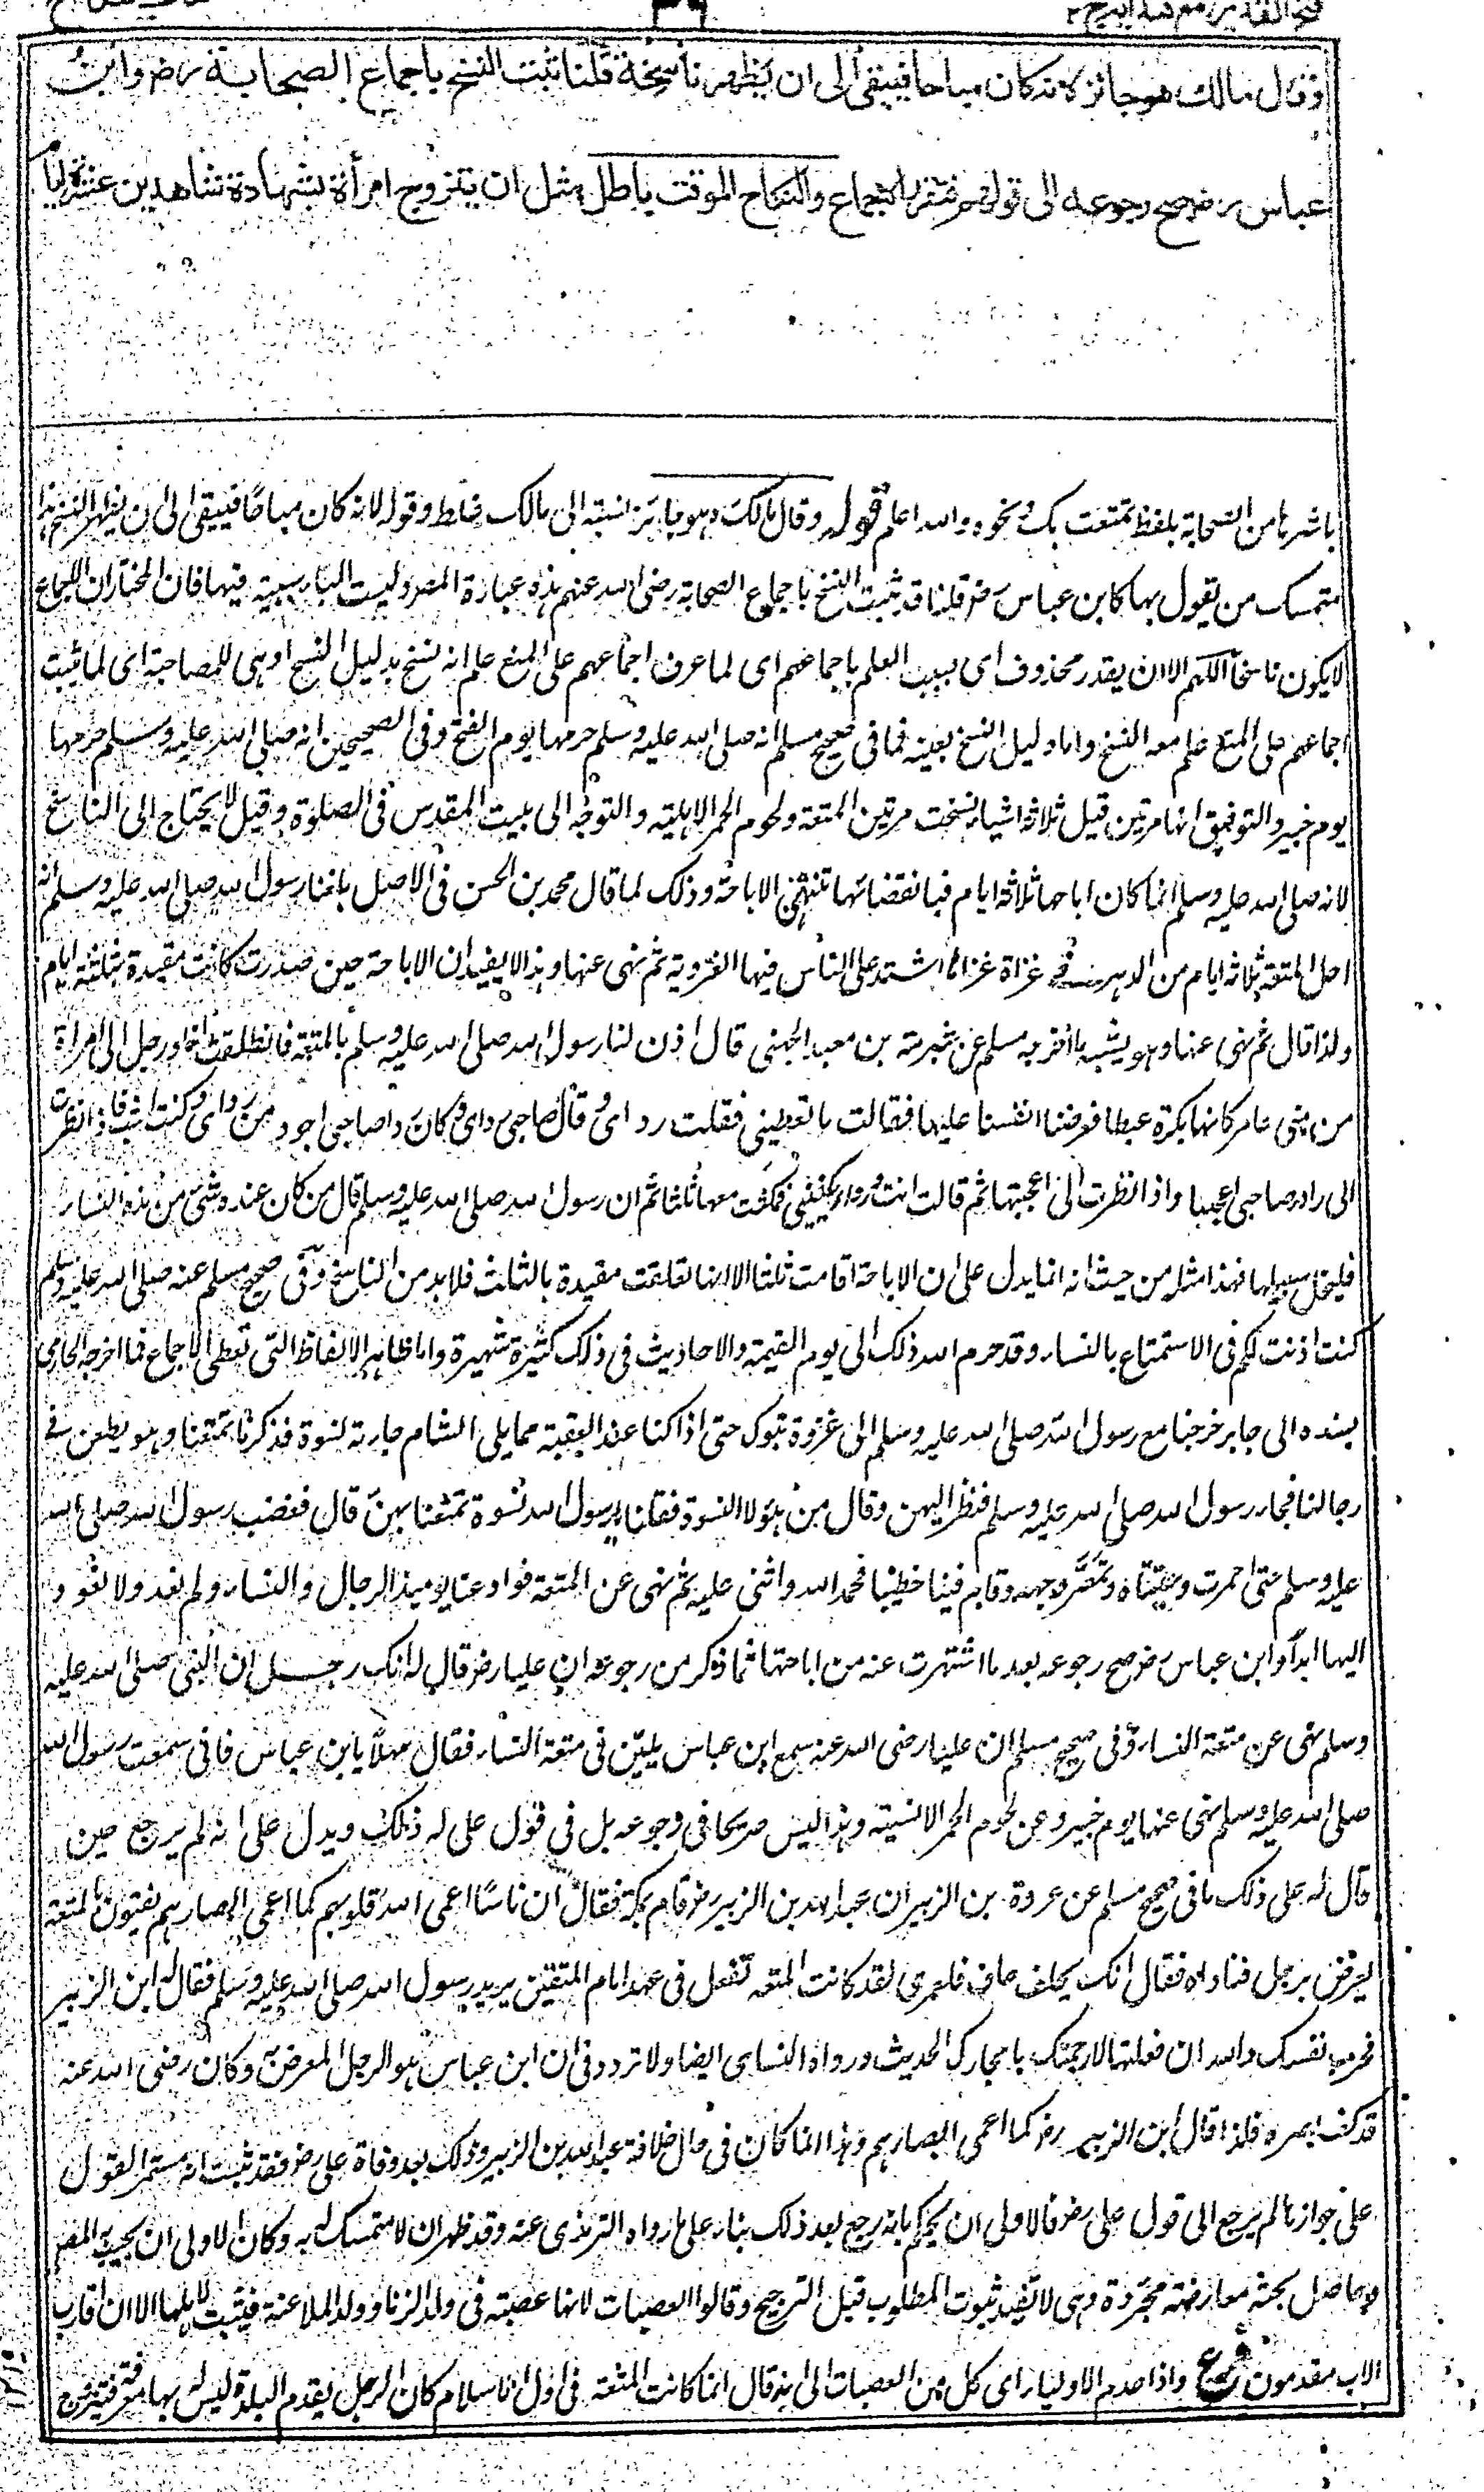 فتح القدير مع هدايه ج ٢
٣٦
وقال مالك هو جائز لانه كان مباحا فيبقى الى ان يظهر ناسخه قلنا ثبت النسخ باجماع الصحابة رض وابن
عباس رض صح رجوعه الى قولهم فتقرر الاجماع والنكاح الموقت باطل مثل ان يتزوج امرأة بشهادة شاهدين عشرة ايام
باشرها من الصحابة بلفظ تمتعت بك ونحوه والله اعلم قوله وقال مالك وهو جائز نسبته الى مالك غلط وقوله لانه كان مباحا فيبقى الى ان يظهر النسخ هذا
متمسك من يقول بها كابن عباس رض قلنا قد ثبت النسخ باجماع الصحابة رضى الله عنهم هذه عبارة المصر وليست الباء سببية فيها فان المختار ان الاجماع
لا يكون ناسخا اللهم الا ان يقدر محذوف اى بسبب العلم باجماعهم اى لما عرف اجماعهم على المنع علم انه نسخ بدليل النسخ او هى للمصاحبة اى لما ثبت
اجماعهم على المنع علم معه النسخ واما دليل النسخ بعينه فما فى صحيح مسلم انه صلى الله عليه وسلم حرمها يوم الفتح وفى الصحيحين انه صلى الله عليه وسلم حرمها
يوم خيبر والتوفيق انها مرتين قيل ثلاثة اشياء نسخت مرتين المتعة ولحوم الحمر الاهلية والتوجه الى بيت المقدس فى الصلوة وقيل لا يحتاج الى الناسخ
لانه صلى الله عليه وسلم انما كان اباحها ثلاثة ايام فبانقضائها تنتهى الاباحة وذلك لما قال محمد بن الحسن فى الاصل بلغنا رسول الله صلى الله عليه وسلم انه
احل المتعة ثلاثة ايام من الدهر فى غزاة غزاها اشتد على الناس فيها العزوبة ثم نهى عنها وهذا لا يفيد ان الاباحة حين صدرت كانت مقيدة بثلثة ايام
ولذا قال ثم نهى عنها وهو يشبه ما اخرجه مسلم عن سبرة بن معبد الجهنى قال اذن لنا رسول الله صلى الله عليه وسلم بالمتعة فانطلقت انا ورجل الى امرأة
من بنى عامر كانها بكرة عيطا فعرضنا انفسنا عليها فقالت ما تعطينى فقلت ردائى وقال صاحبى ردائى وكان رداء صاحبى اجود من ردائى وكنت اشب فاذا نظرت
الى رداء صاحبى اعجبها واذا نظرت الى اعجبتها ثم قالت انت ورداؤك يكفينى فمكثت معها ثلثا ثم ان رسول الله صلى الله عليه وسلم قال من كان عنده شئ من هذه النساء
فليخل سبيلها فهذا مثله من حيث انه انما يدل على ان الاباحة اقامت ثلثا لا انها تعلقت مقيدة بالثلث فلا بد من الناسخ وفى صحيح مسلم عنه صلى الله عليه وسلم
كنت اذنت لكم فى الاستمتاع بالنساء وقد حرم الله ذلك الى يوم القيمة والاحاديث فى ذلك كثيرة شهيرة واما ظاهر الالفاظ التى تعطى الاجماع فما اخرجه الحازمى
بسنده الى جابر خرجنا مع رسول الله صلى الله عليه وسلم الى غزوة تبوك حتى اذا كنا عند العقبة مما يلى الشام جاءت نسوة فذكرنا تمتعنا وهو يطعن فى
رحالنا فجاء رسول الله صلى الله عليه وسلم فنظر اليهن وقال من هؤلاء النسوة فقلنا يا رسول الله نسوة تمتعنا بهن قال فغضب رسول الله صلى الله
عليه وسلم حتى احمرت وجنتاه وتمعر وجهه وقام فينا خطيبا فحمد الله واثنى عليه ثم نهى عن المتعة فتوادعنا يومئذ الرجال والنساء ولم نعد ولا نعود
اليها ابدا وابن عباس رض صح رجوعه بعد ما اشتهرت عنه من اباحتها ثما ذكر من رجوعه ان عليا رض قال له انك رجل ان النبى صلى الله عليه
وسلم نهى عن متعة النساء وفى صحيح مسلم ان عليا رضى الله عنه سمع ابن عباس يلين فى متعة النساء فقال مهلا يا ابن عباس فانى سمعت رسول الله
صلى الله عليه وسلم نهى عنها يوم خيبر وعن لحوم الحمر الانسية وهذا ليس صريحا فى رجوعه بل فى قول على له ذلك ويدل على انه لم يرجع حين
قال له على ذلك ما فى صحيح مسلم عن عروة بن الزبير ان عبد الله بن الزبير رض قام بمكة فقال ان ناسا اعمى الله قلوبهم كما اعمى ابصارهم يفتون بالمتعة
يعرض برجل فناداه فقال انك لجلف جاف فلعمرى لقد كانت المتعة تفعل فى عهد امام المتقين يريد رسول الله صلى الله عليه وسلم فقال له ابن الزبير
فجرب نفسك والله ان فعلتها لارجمنك باحجارك الحديث ورواه النسائى ايضا ولا تردد فى ان ابن عباس هو الرجل المعرض به وكان رضى الله عنه
قد كف بصره فلذا قال ابن الزبير رض كما اعمى ابصارهم وهذا انما كان فى حال خلافة عبد الله بن الزبير وذلك بعد وفاة على رض فقد ثبت انه مستمر القول
على جوازها لم يرجع الى قول على رض فالاولى ان يحكم بانه رجع بعد ذلك بناء على ما رواه الترمذى عنه وقد ظهر ان لا متمسك له به وكان الاولى ان يجيبه المصر
وحاصل بحثه معارضة مجردة وهى لا تفيد ثبوت المطلوب قبل الترجيح وقالوا العصبات لانها عصبته فى ولد الزنا وولد الملاعنة فيثبت لاهلها الا ان اقارب
الاب مقدمون فرع واذا عدم الاولياء اى كل من العصبات الى هذ قال انما كانت المتعة فى اول الاسلام كان الرجل يقدم البلدة ليس له بها معرفة فيتزوج